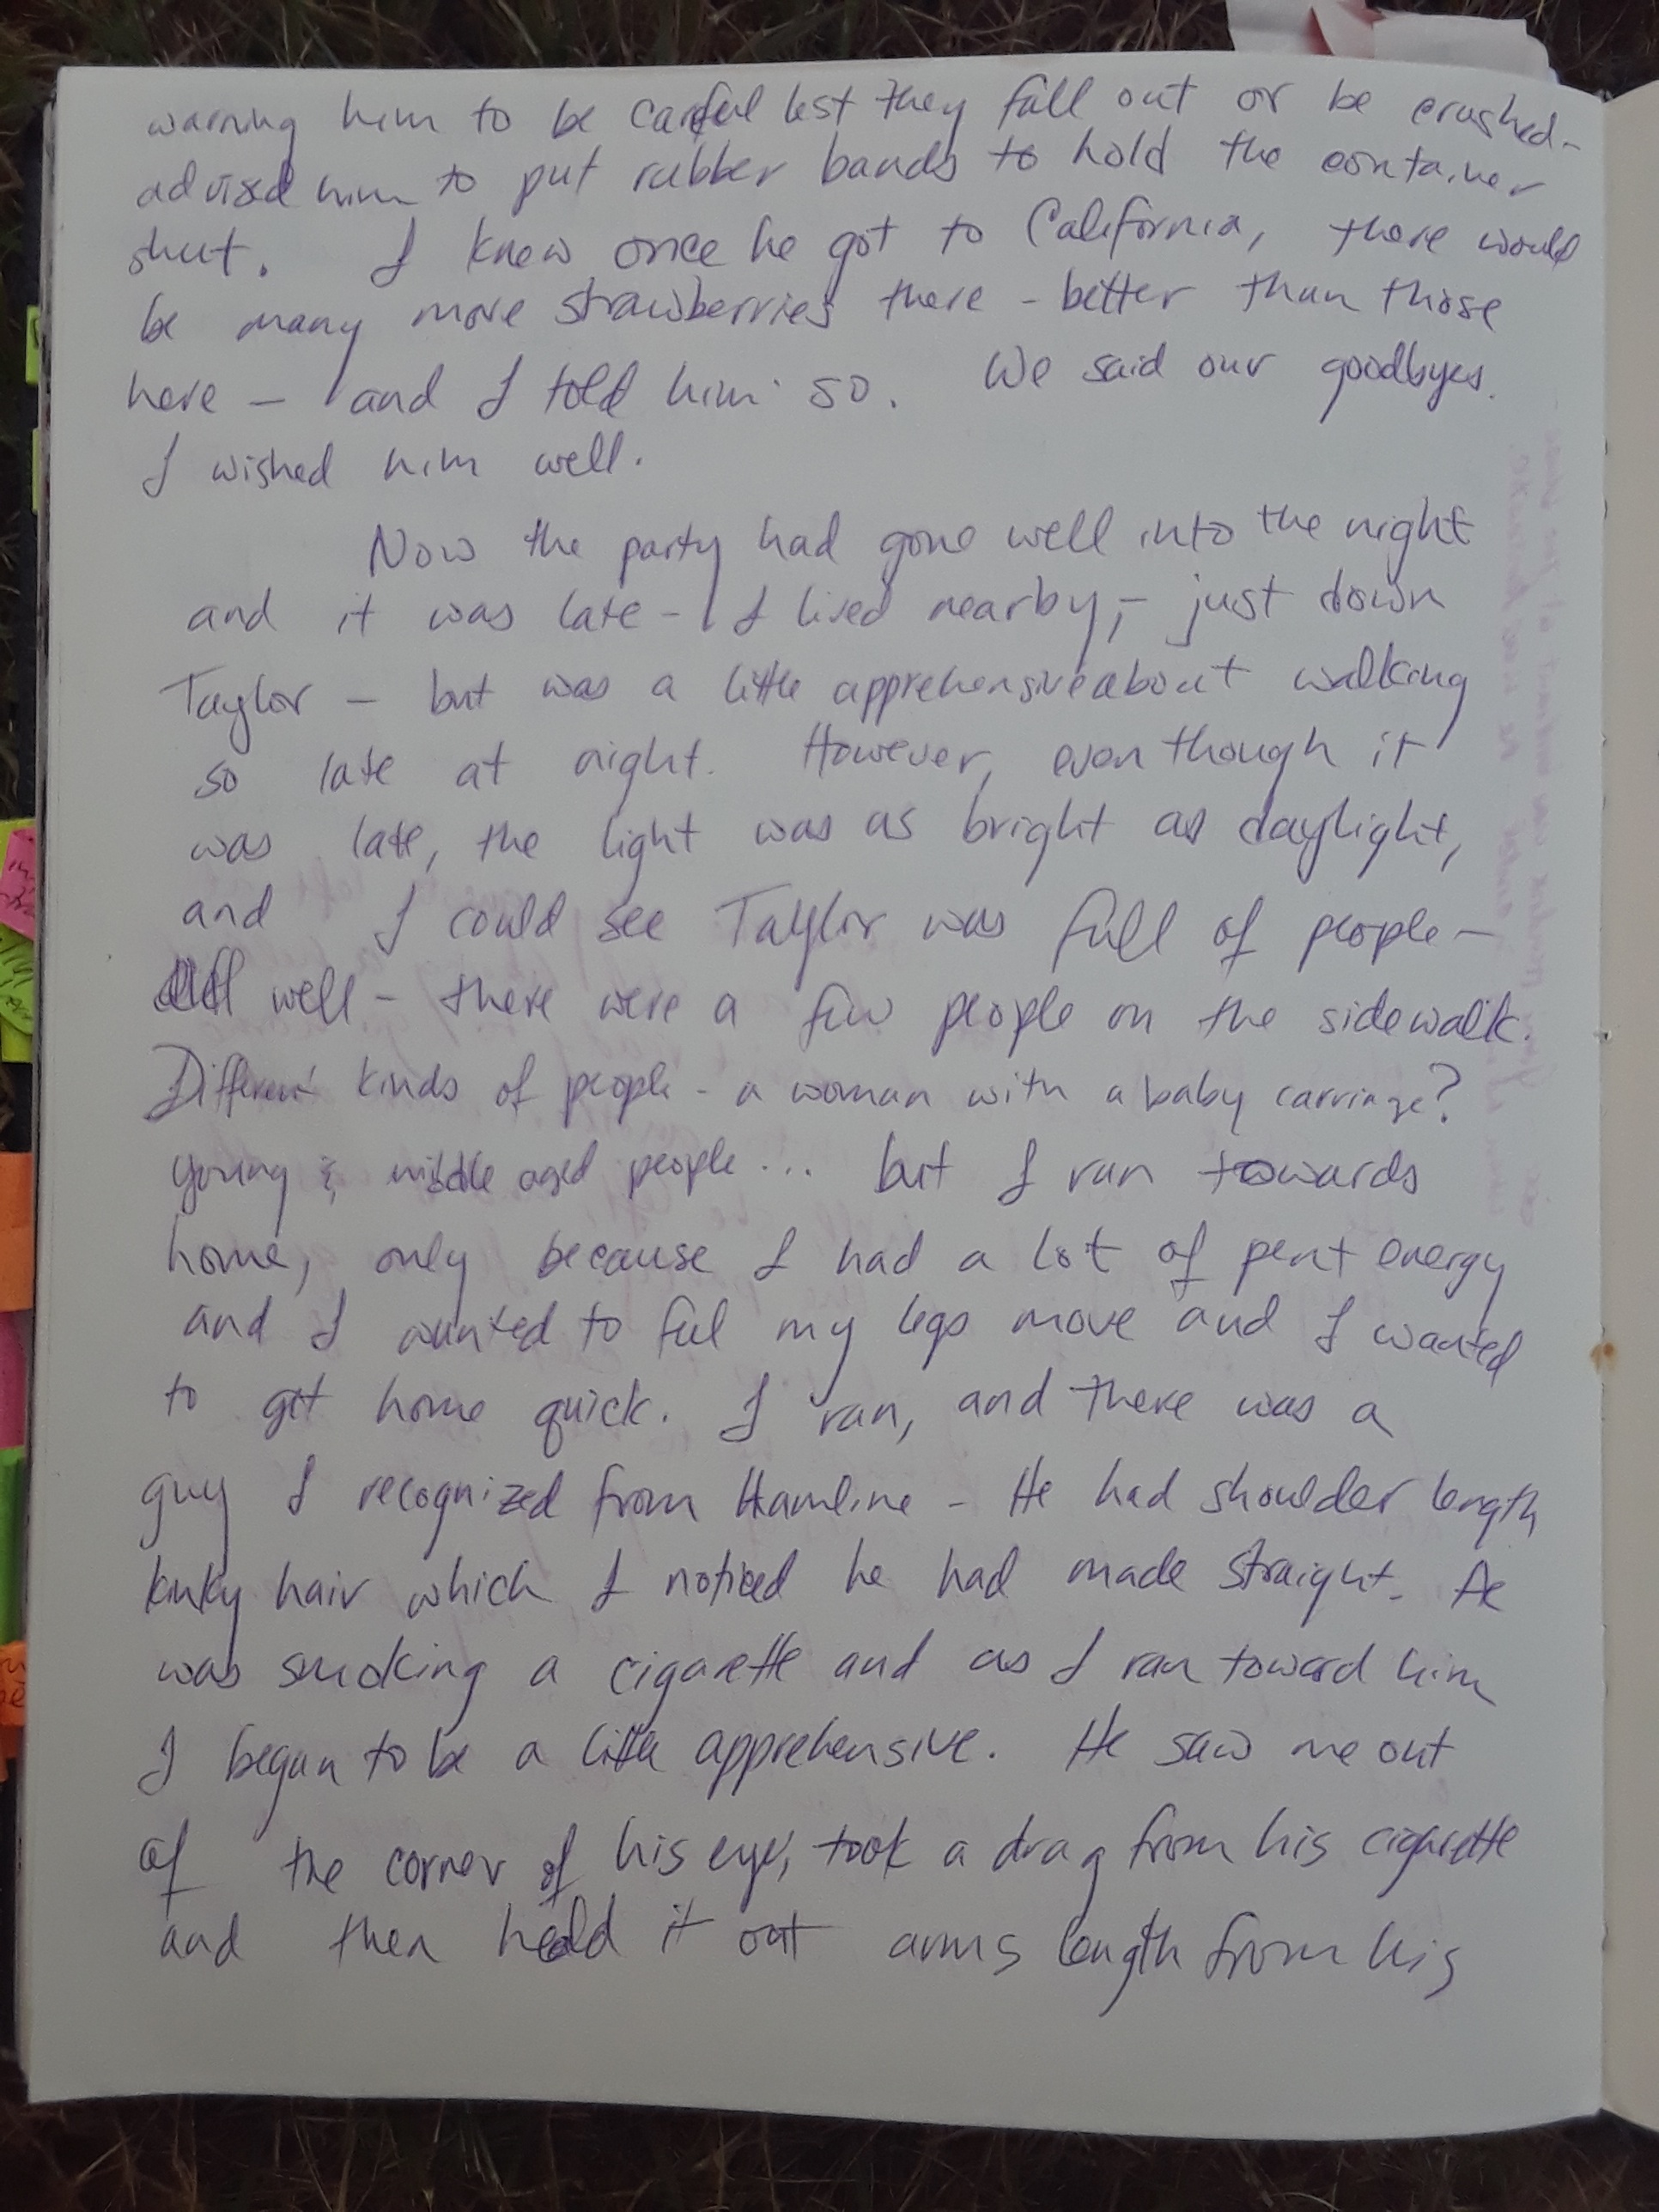 warning him to be careful lest they fall out or be crushed-
advised him to put rubber bands to hold the container
shut. I knew once he got to California, there would
be many more strawberries there - better than those
here - and I told him so. We said our goodbyes.
I wished him well.
Now the party had gone well into the night
and it was late - I lived nearby, - just down
Taylor - but was a little apprehensive about walking
so late at night. However, even though it
was late, the light was as bright as daylight,
and I could see Taylor was full of people -
well - there were a few people on the sidewalk.
Different kinds of people - a woman with a baby carriage?
young & middle aged people ... but I ran towards
home, only because I had a lot of pent energy
and I wanted to feel my legs move and I wanted
to get home quick. I ran, and there was a
guy I recognized from Hamline - He had shoulder length
kinky hair which I noticed he had made straight. He
was smoking a cigarette and as I ran toward him
I began to be a little apprehensive. He saw me out
of the corner of his eye, took a drag from his cigarette
and then held it out arms length from his